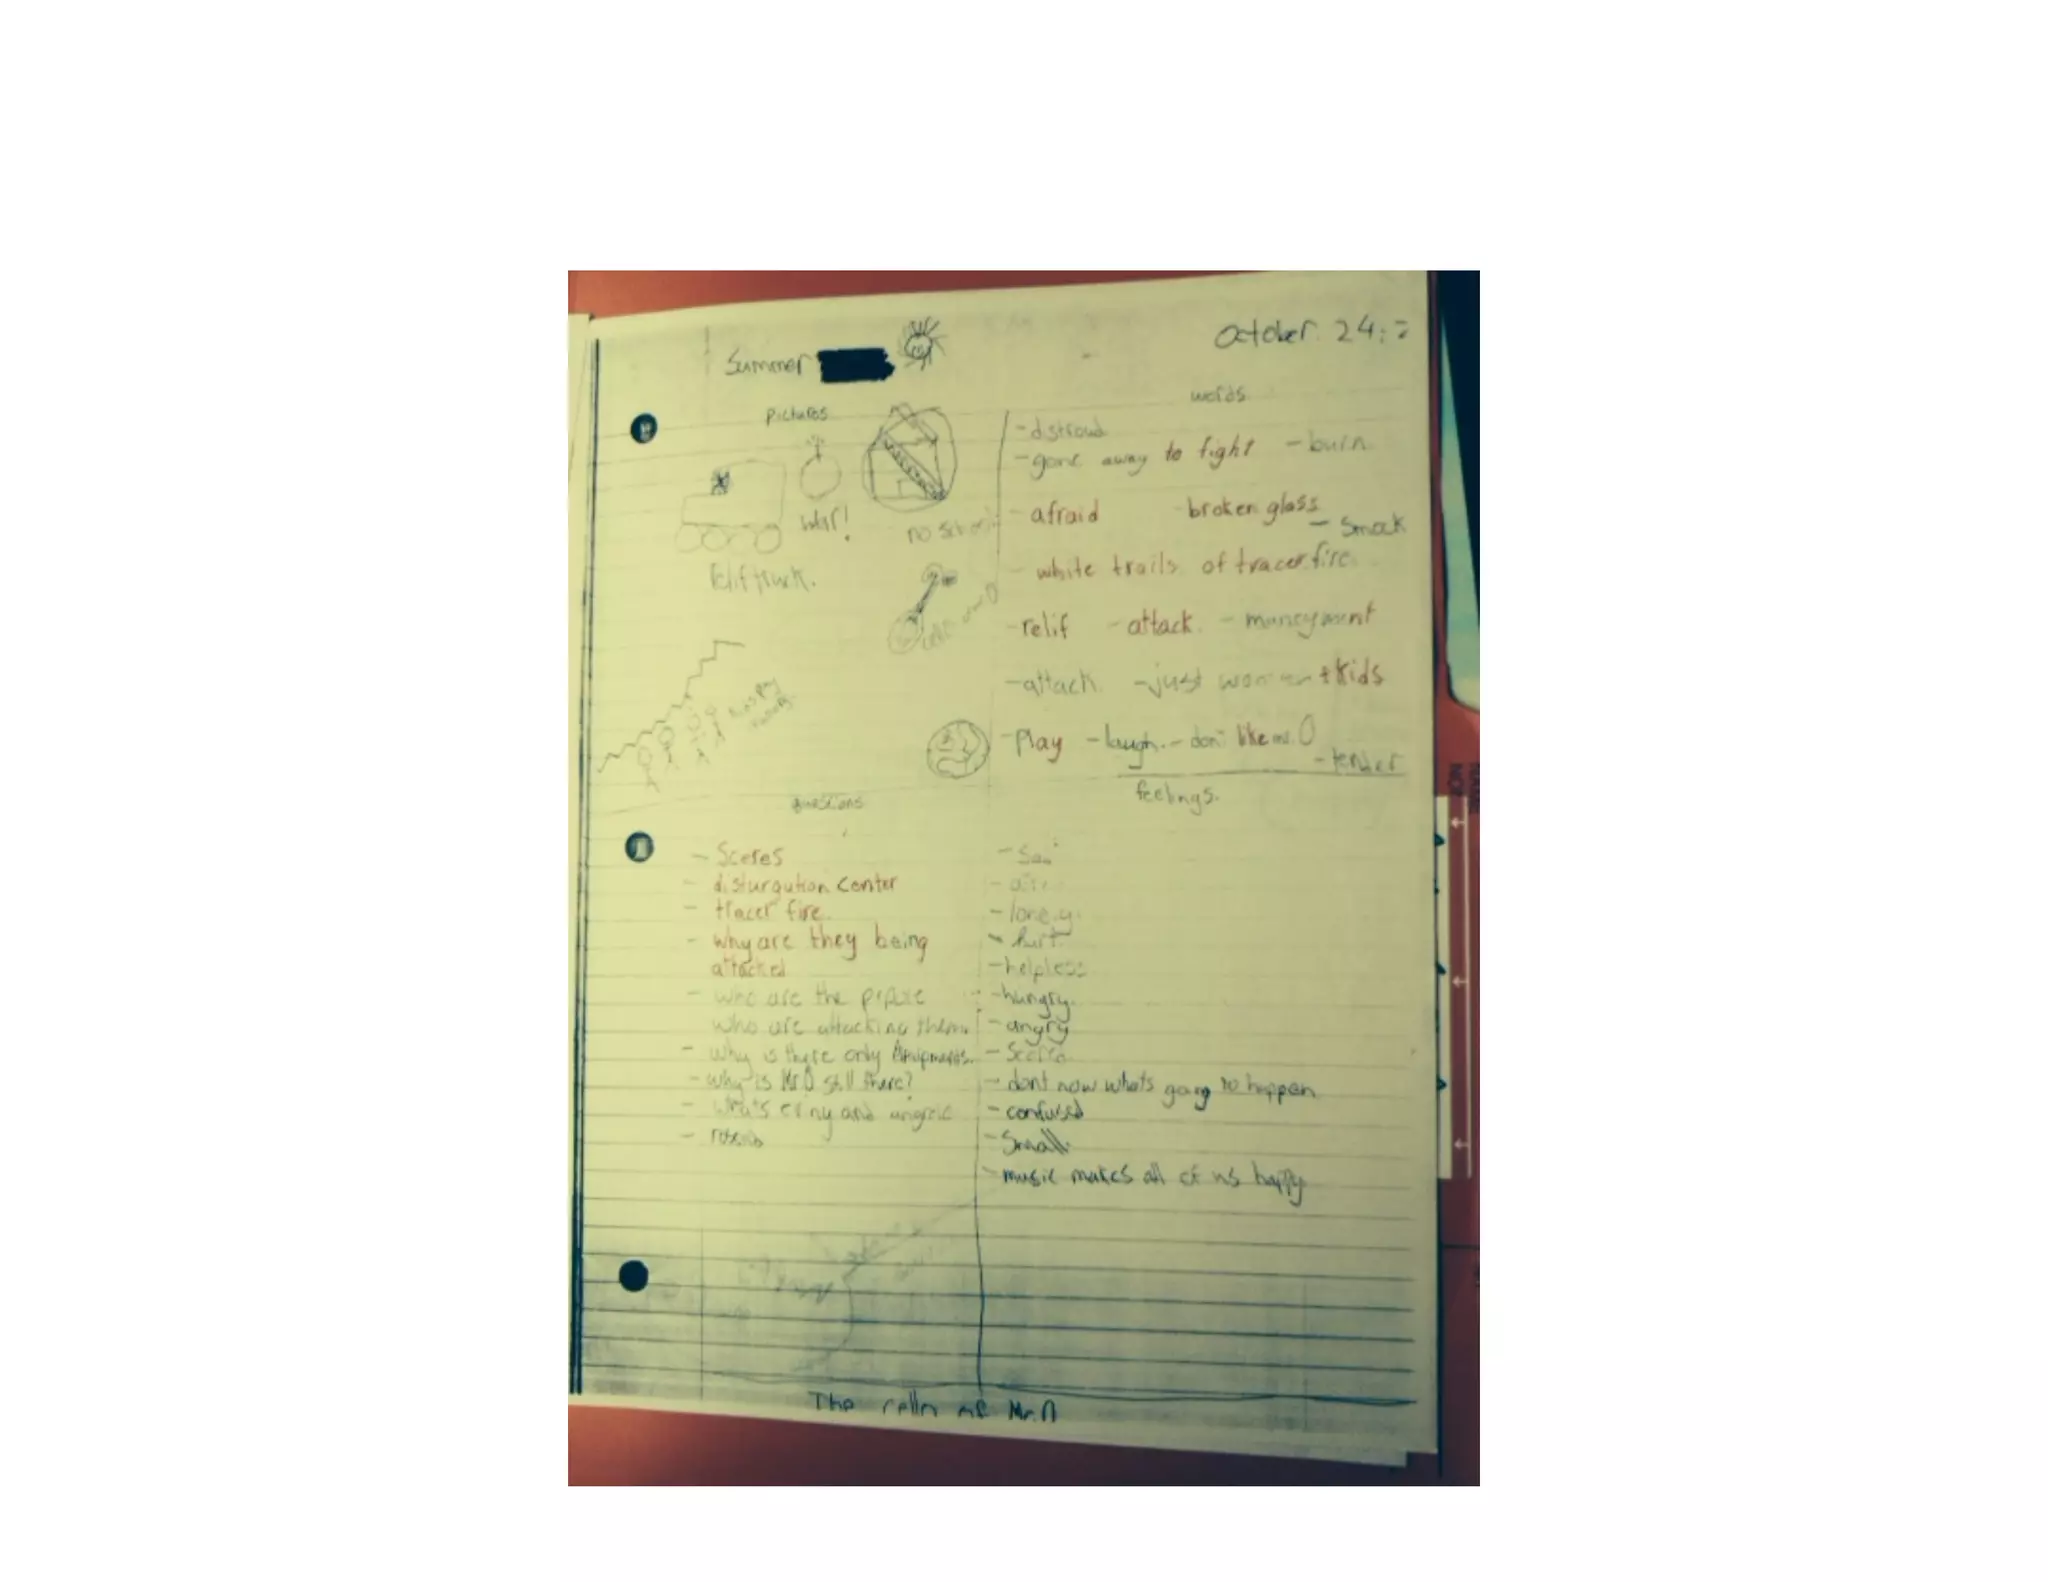 Summer
October 24
pictures
words
- distroud
- gone away to fight - burn
- afraid - broken glass
- Smock
war!
no School
- white trails of tracer fire
relif truck.
- relif - attack. - muneyment
- attack. - just women + kids
- Play - laugh. - don't like mr. O
- tender
questions
feelings.
- Sceres
- disturgution center
- tracer fire.
- why are they being
attacked
- who are the people
who are attacking them.
- why is there only
- why is Mr.O still there?
- whats and
- Sad
- lonely.
- hurt.
- helpless
- hungry.
- angry
- Scared
- dont now whats going to happen
- confused
- Small.
- music makes all of us happy
The of Mr.O